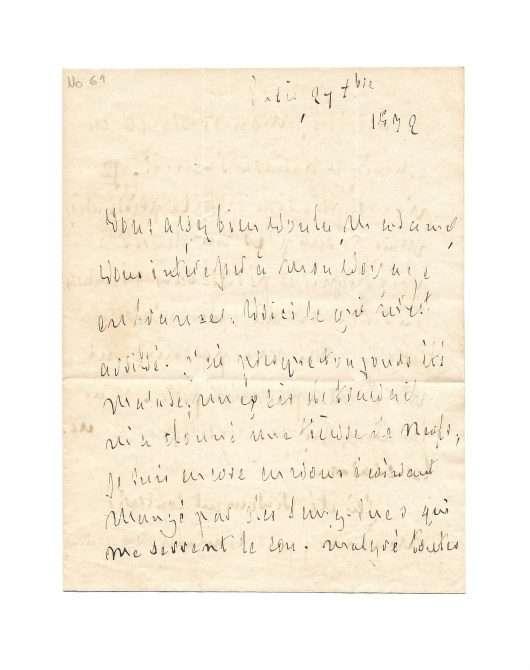 No 69
27 7bre
1872
Vous avez bien voulu, Madame,
vous intéresser à mon voyage
en France. Voici ce qui m'est
arrivé. J'ai presque toujours été
malade, un excès de travail
m'a donné une fièvre de nerfs,
je suis encore en
mangé par des sangsues qui
me serrent le cou. malgré toutes